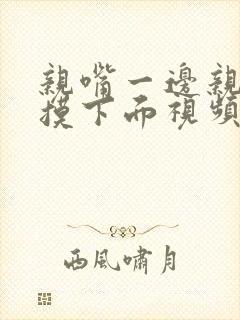 親嘴一邊親
摸下面視頻
西風嘯月